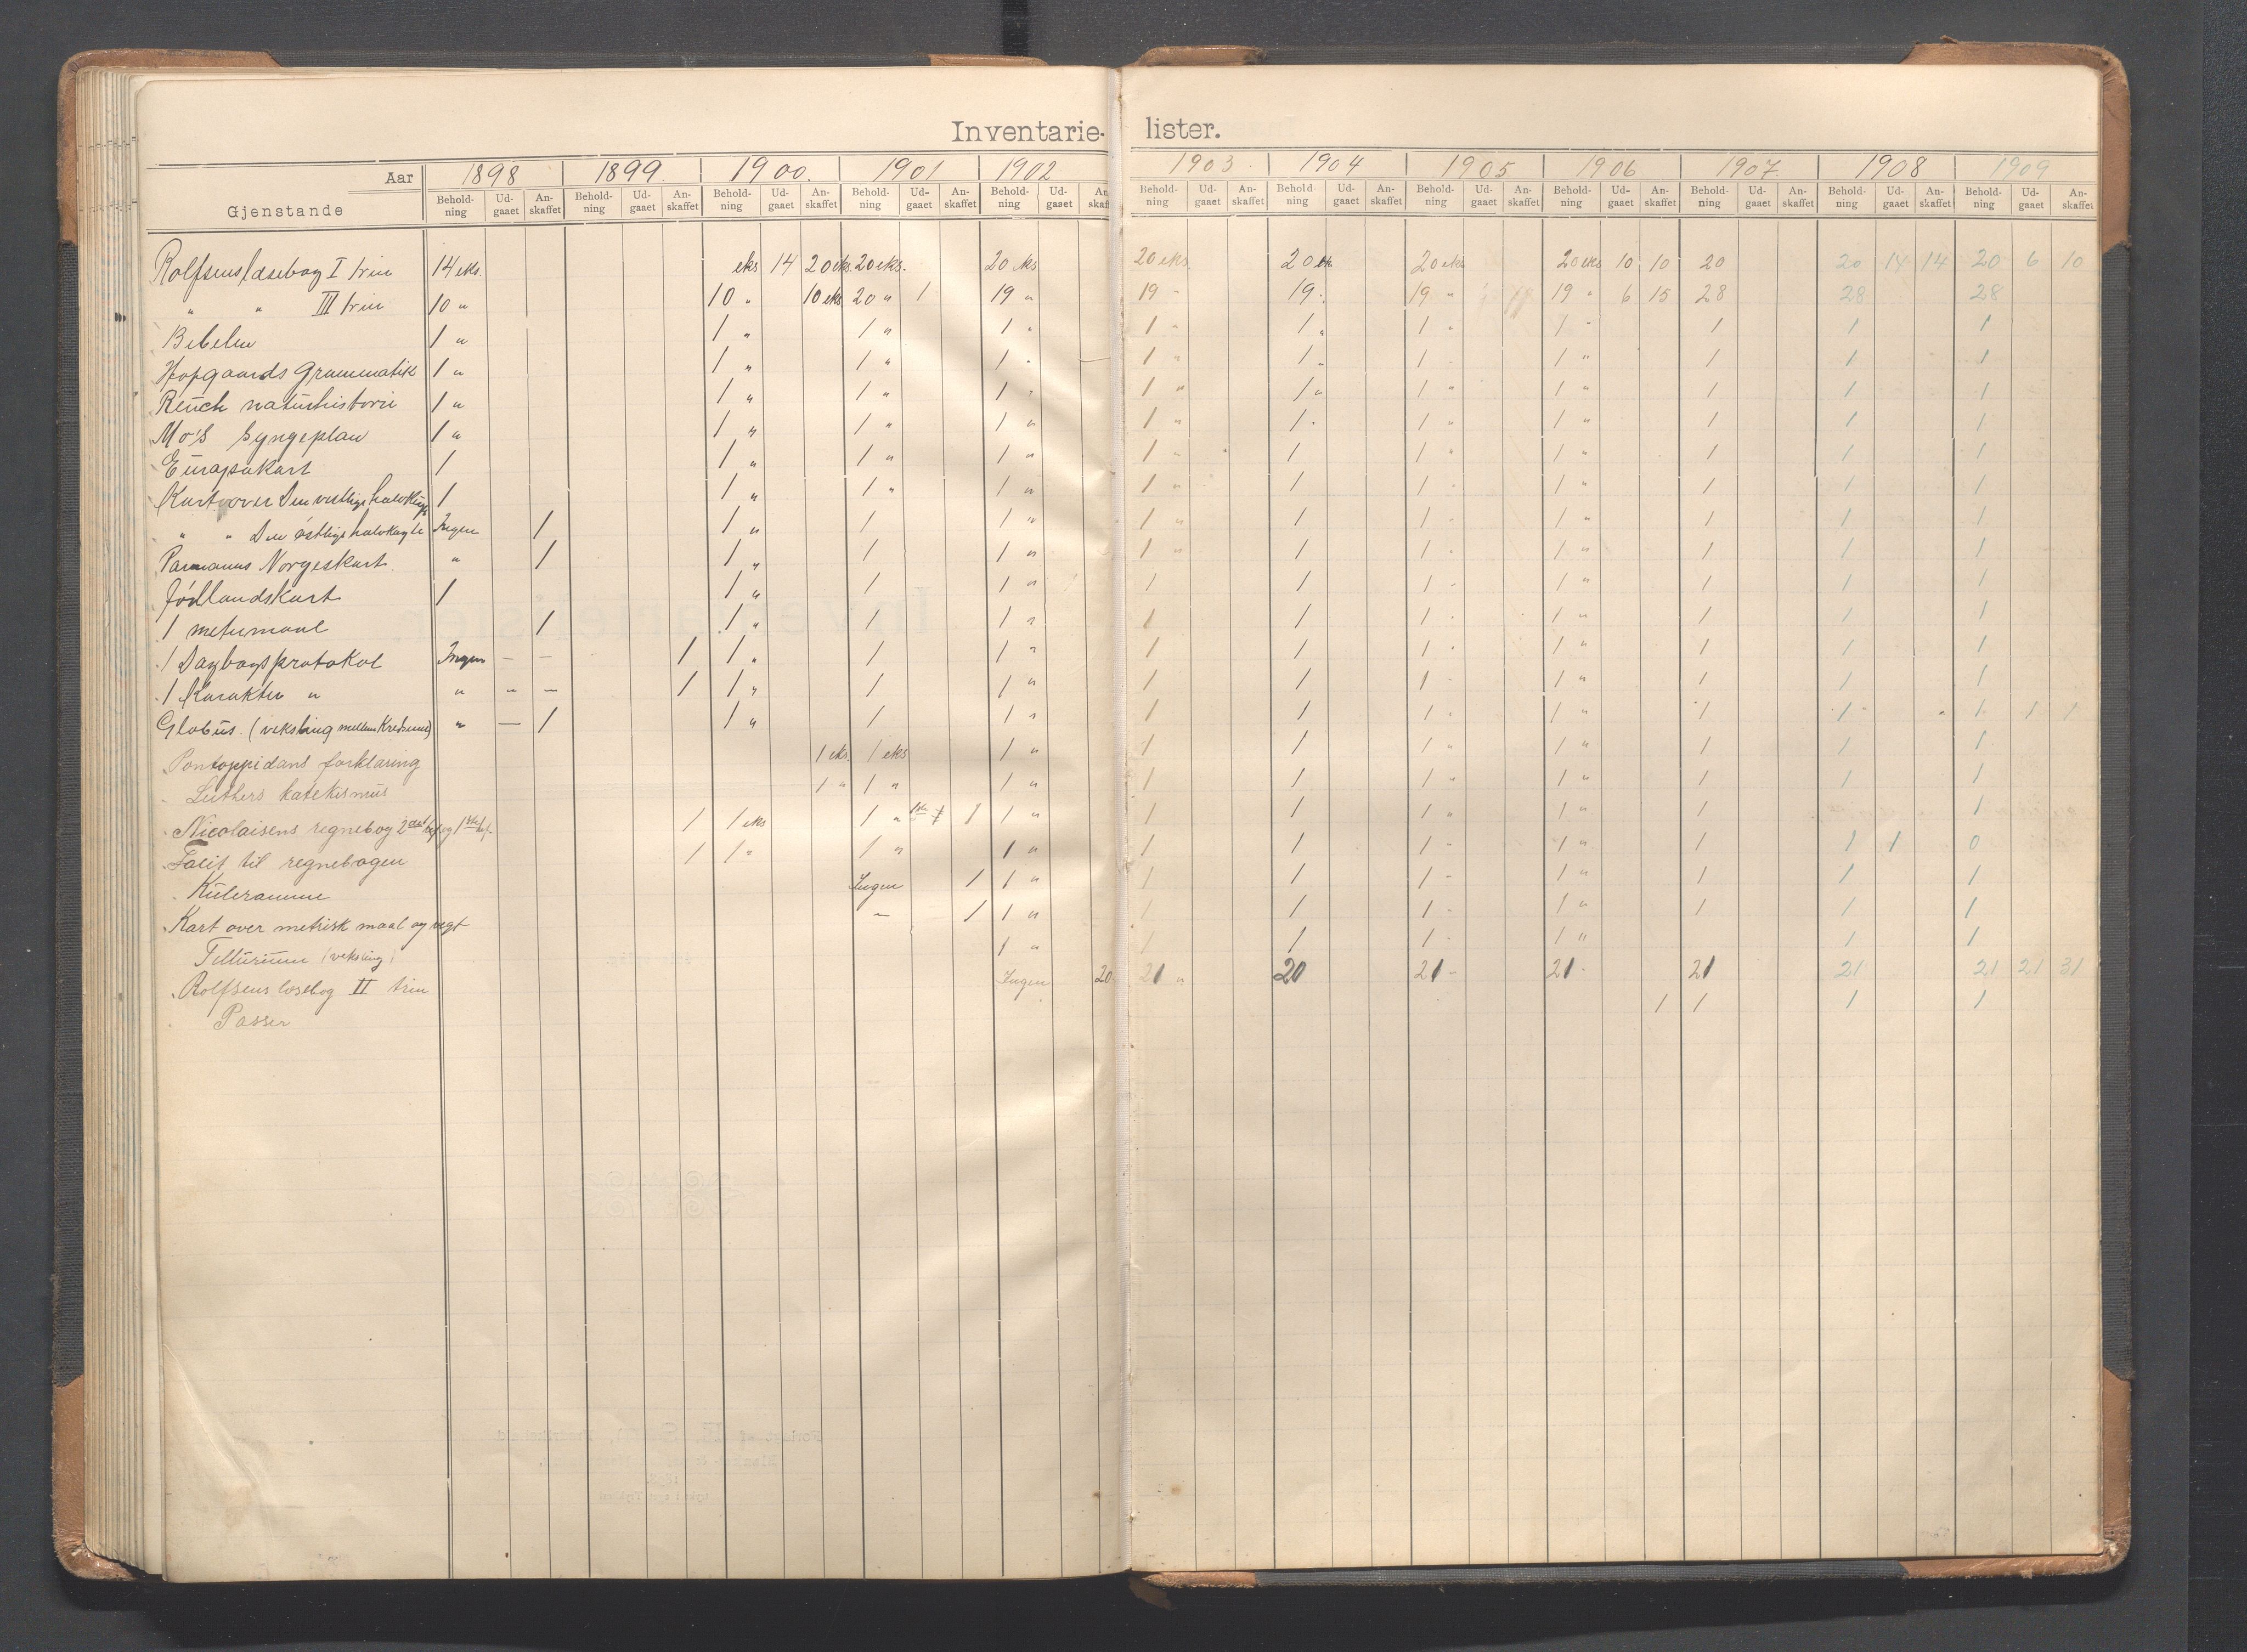 Inventarie- lister.
Aar 1898 1899. 1900. 1901 1902 1903 1904 1905 1906 1907 1908 1909
Gjenstande Behold-ning Ud-gaaet An-skaffet Behold-ning Ud-gaaet An-skaffet Behold-ning Ud-gaaet An-skaffet Behold-ning Ud-gaaet An-skaffet Behold-ning Ud-gaaet An-skaff Behold-ning Ud-gaaet An-skaffet Behold-ning Ud-gaaet An-skaffet Behold-ning Ud-gaaet An-skaffet Behold-ning Ud-gaaet An-skaffet Behold-ning Ud-gaaet An-skaffet Behold-ning Ud-gaaet An-skaffet Behold-ning Ud-gaaet An-skaffet
Rolfsens læsebog I trin 14 eks. eks 14 20 eks. 20 eks. 20 eks 20 eks 20 ek 20 eks 20 eks 10 10 20 20 14 14 20 6 10
" " III trin 10 " 10 " 10 eks 20 " 1 19 " 19 " 19 " 19 " 19 " 6 15 28 28 28
Bibelen 1 " 1 " 1 " 1 " 1 " 1 " 1 " 1 " 1 1 1
Hofgaards Grammatik 1 " 1 " 1 " 1 " 1 " 1 " 1 " 1 " 1 1 1
Reuch naturhistorie 1 " 1 " 1 " 1 " 1 " 1 " 1 " 1 " 1 1 1
Mo's Syngeplan 1 " 1 " 1 " 1 " 1 " 1 " 1 " 1 " 1 1 1
Europakart 1 1 " 1 " 1 " 1 " 1 1 " 1 " 1 1 1
Kart over Den vestlige halvkugle 1 1 " 1 " 1 " 1 " 1 1 " 1 " 1 1 1
" " Den østlige halvkugle Ingen 1 1 " 1 1 " 1 " 1 1 " 1 " 1 1 1
Norgeskart. " 1 1 " 1 1 " 1 " 1 1 " 1 " 1 1 1
Jødlandskart 1 1 " 1 1 " 1 1 1 " 1 " 1 1 1
1 metermaal 1 1 " 1 1 " 1 1 1 " 1 " 1 1 1
1 Dagbogsprotokol Ingen — — 1 1 " 1 1 " 1 1 1 " 1 " 1 1 1
1 Karakter " " " — 1 1 " 1 1 " 1 1 1 " 1 " 1 1 1
Globus. (veksling mellem Kredsene) " — 1 1 " 1 1 " 1 1 1 " 1 " 1 1 1 1 1
Pontoppidans forklaring 1 eks. 1 eks 1 " 1 1 1 " 1 " 1 1 1
Luthers katekismus 1 " 1 " 1 " 1 1 1 " 1 " 1 1 1
Nicolaisens regnebog 2det hef. og 1ste hef. 1 1 eks 1 " 1ste 1 1 1 " 1 1 1 " 1 " 1 1
Facit til regnebogen 1 1 " 1 " 1 " 1 1 1 " 1 " 1 1 1 0
Kuleramme Ingen 1 1 " 1 1 1 " 1 " 1 1 1
Kart over metrisk maal og vegt — 1 1 " 1 1 1 " 1 " 1 1 1
Tellurium (veksling) 1 " 1 1 1 " 1 " 1 1
Rolfsens læsebog II trin Ingen 20 21 " 20 21 " 21 " 21 21 21 21 31
Passer 1 1 1 1